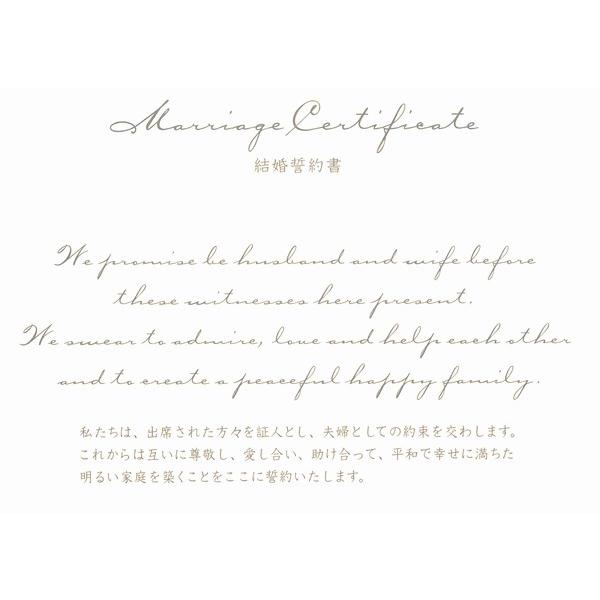 Marriage Certificate
結婚誓約書
We promise be husband and wife before
these witnesses here present.
We swear to admire, love and help each other
and to create a peaceful happy family.
私たちは、出席された方々を証人とし、夫婦としての約束を交わします。
これからは互いに尊敬し、愛し合い、助け合って、平和で幸せに満ちた
明るい家庭を築くことをここに誓約いたします。